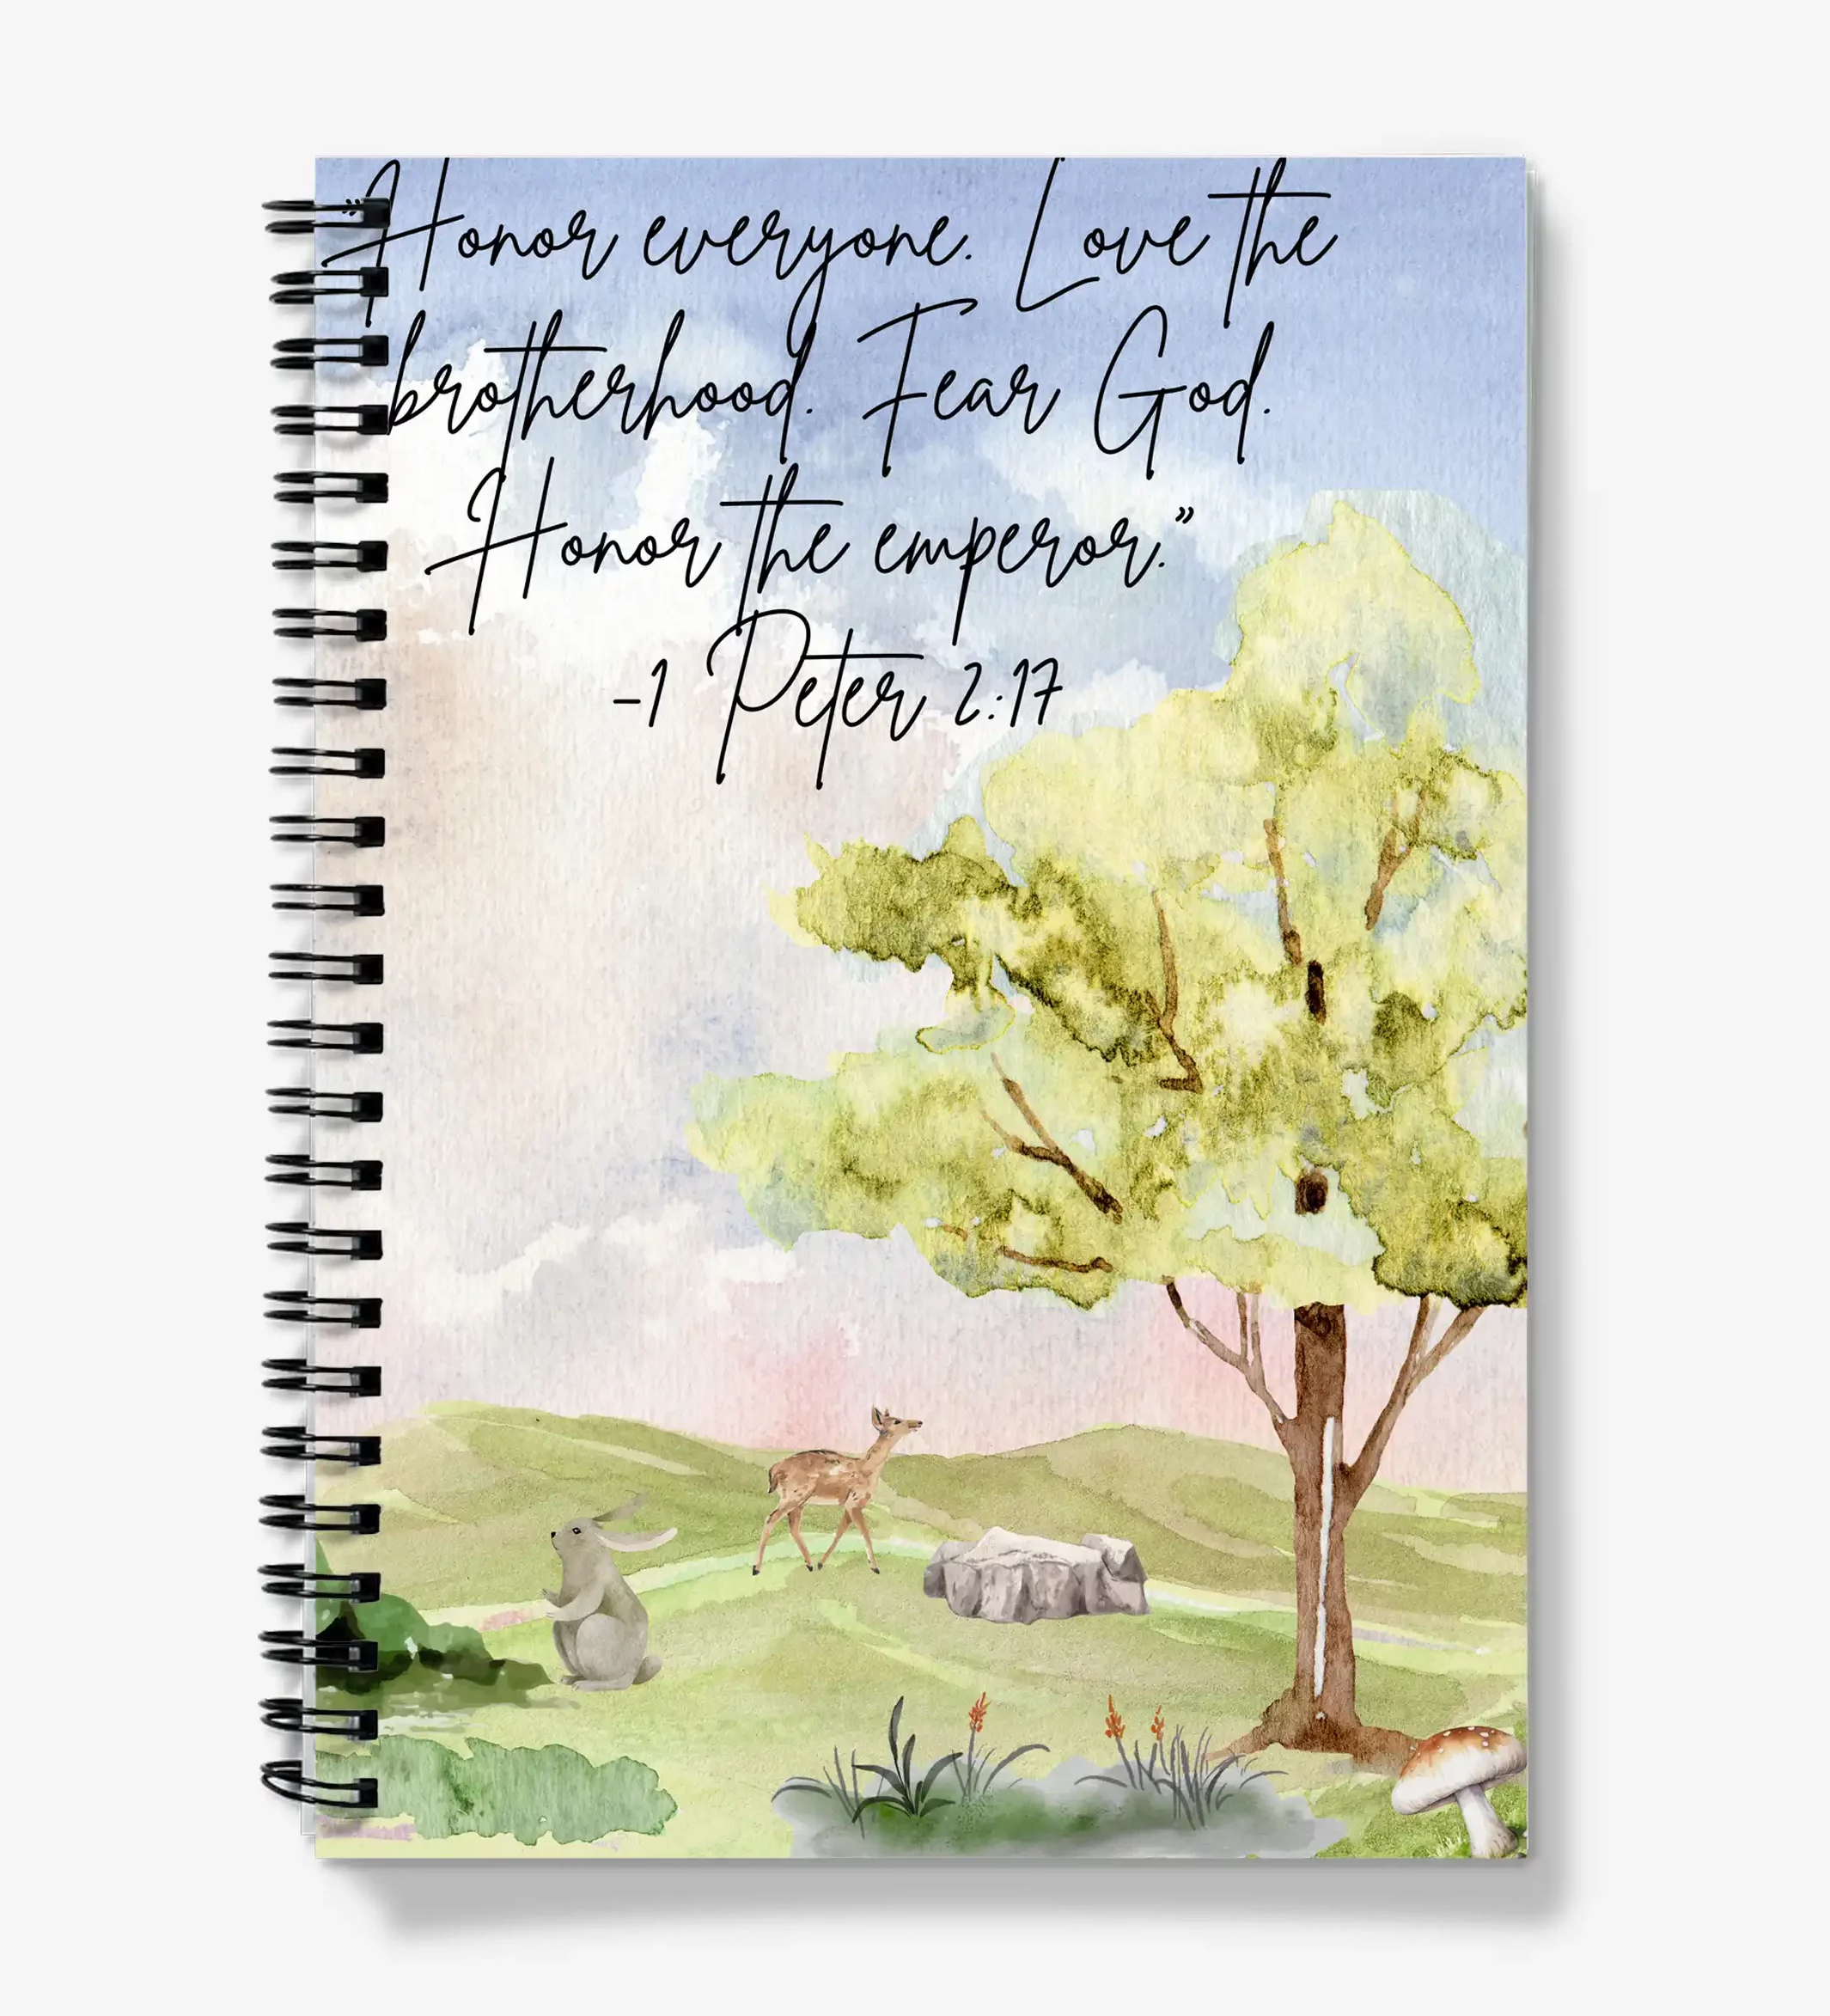 "Honor everyone. Love the
brotherhood. Fear God.
Honor the emperor."
-1 Peter 2:17